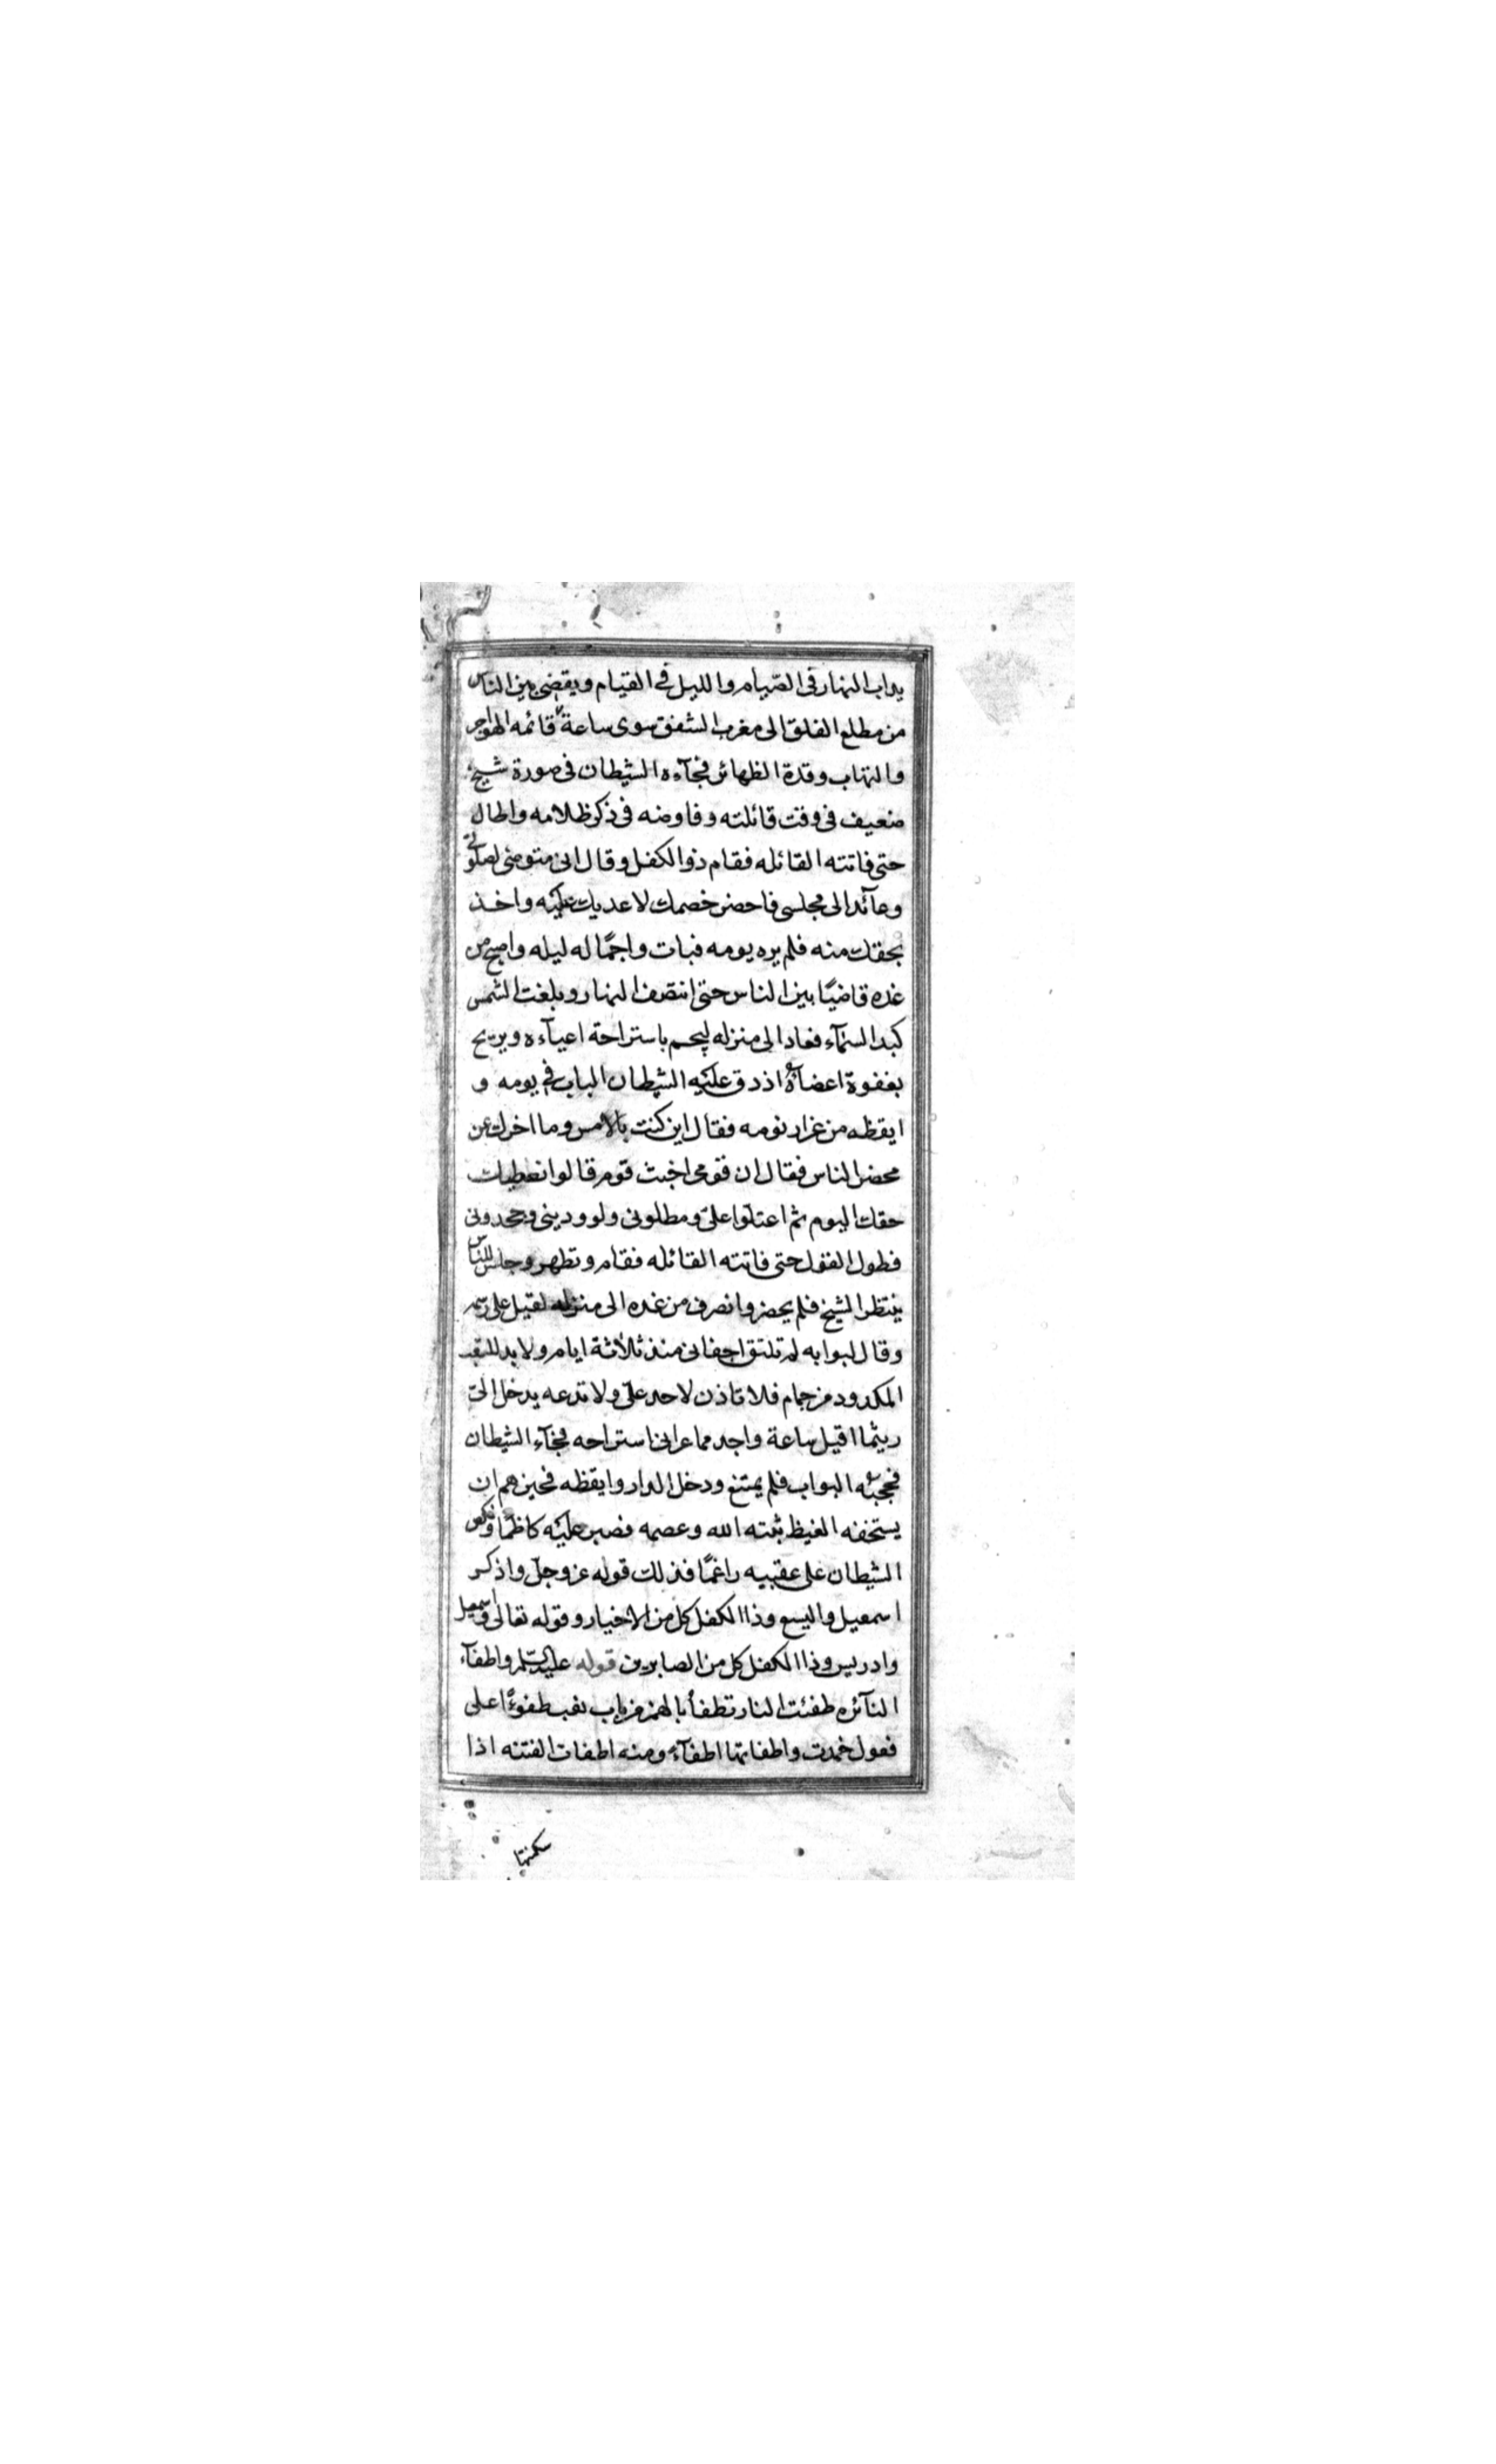 يداب النهار فى الصّيام والليل فى القيام ويقضى بين الناس
من مطلع الفلق الى مغرب الشفق سوى ساعة قائمه الهواجر
والتهاب وقدة الظهائر فجآءه الشيطان فى صورة شيخ
ضعيف فى وقت قائلته وفاوضه فى ذكر ظلامه واطال
حتى فاتته القائله فقام ذو الكفل وقال انى متوضى لصلوتى
وعآئد الى مجلسى فاحضر خصمك لاعديك عليه واخذ
بحقك منه فلم يره يومه فبات واجمًا له ليله واصبح من
غده قاضيًا بين الناس حتى انتصف النهار وبلغت الشمس
كبد السمآء فعاد الى منزله ليجم باستراحة اعيآءه ويريح
بغفوة اعضآءه اذ دق عليه الشيطان الباب فى يومه و
ايقظه من غرار نومه فقال اين كنت بالامس وما اخرك عن
محضر الناس فقال ان قومى اخبث قوم قالوا نعطيك
حقك اليوم ثم اعتلّوا علىّ ومطلونى ولوو دينى وجحدونى
فطول القول حتى فاتته القائله فقام وتطهر وجلس للناس
ينتظر الشيخ فلم يحضر وانصرف من غده الى منزله لقيل على رسمه
وقال لبوابه لم تلتق اجفانى منذ ثلاثة ايام ولا بد
المكدود من جمام فلا تاذن لاحد علىّ ولا تدعه يدخل الىّ
ريثما اقيل ساعة واجد مما عرانى استراحه فجآء الشيطان
فحجبه البواب فلم يمتنع ودخل الدار وايقظه فحين هم ان
يستخفه الغيظ ثبته الله وعصمه فصبر عليه كاظمًا ونكص
الشيطان على عقبيه راغمًا فذلك قوله عز وجل واذكر
اسمعيل واليسع وذا الكفل كل من الاخيار وقوله تعالى واسمعيل
وادريس وذا الكفل كل من الصابرين قوله عليه السّلم واطفآء
النآئره طفئت النار تطفأ بالهمز من باب تعب طفوءًا على
فعول خمدت واطفاتها اطفآء ومنه اطفات الفتنه اذا
سكنتها